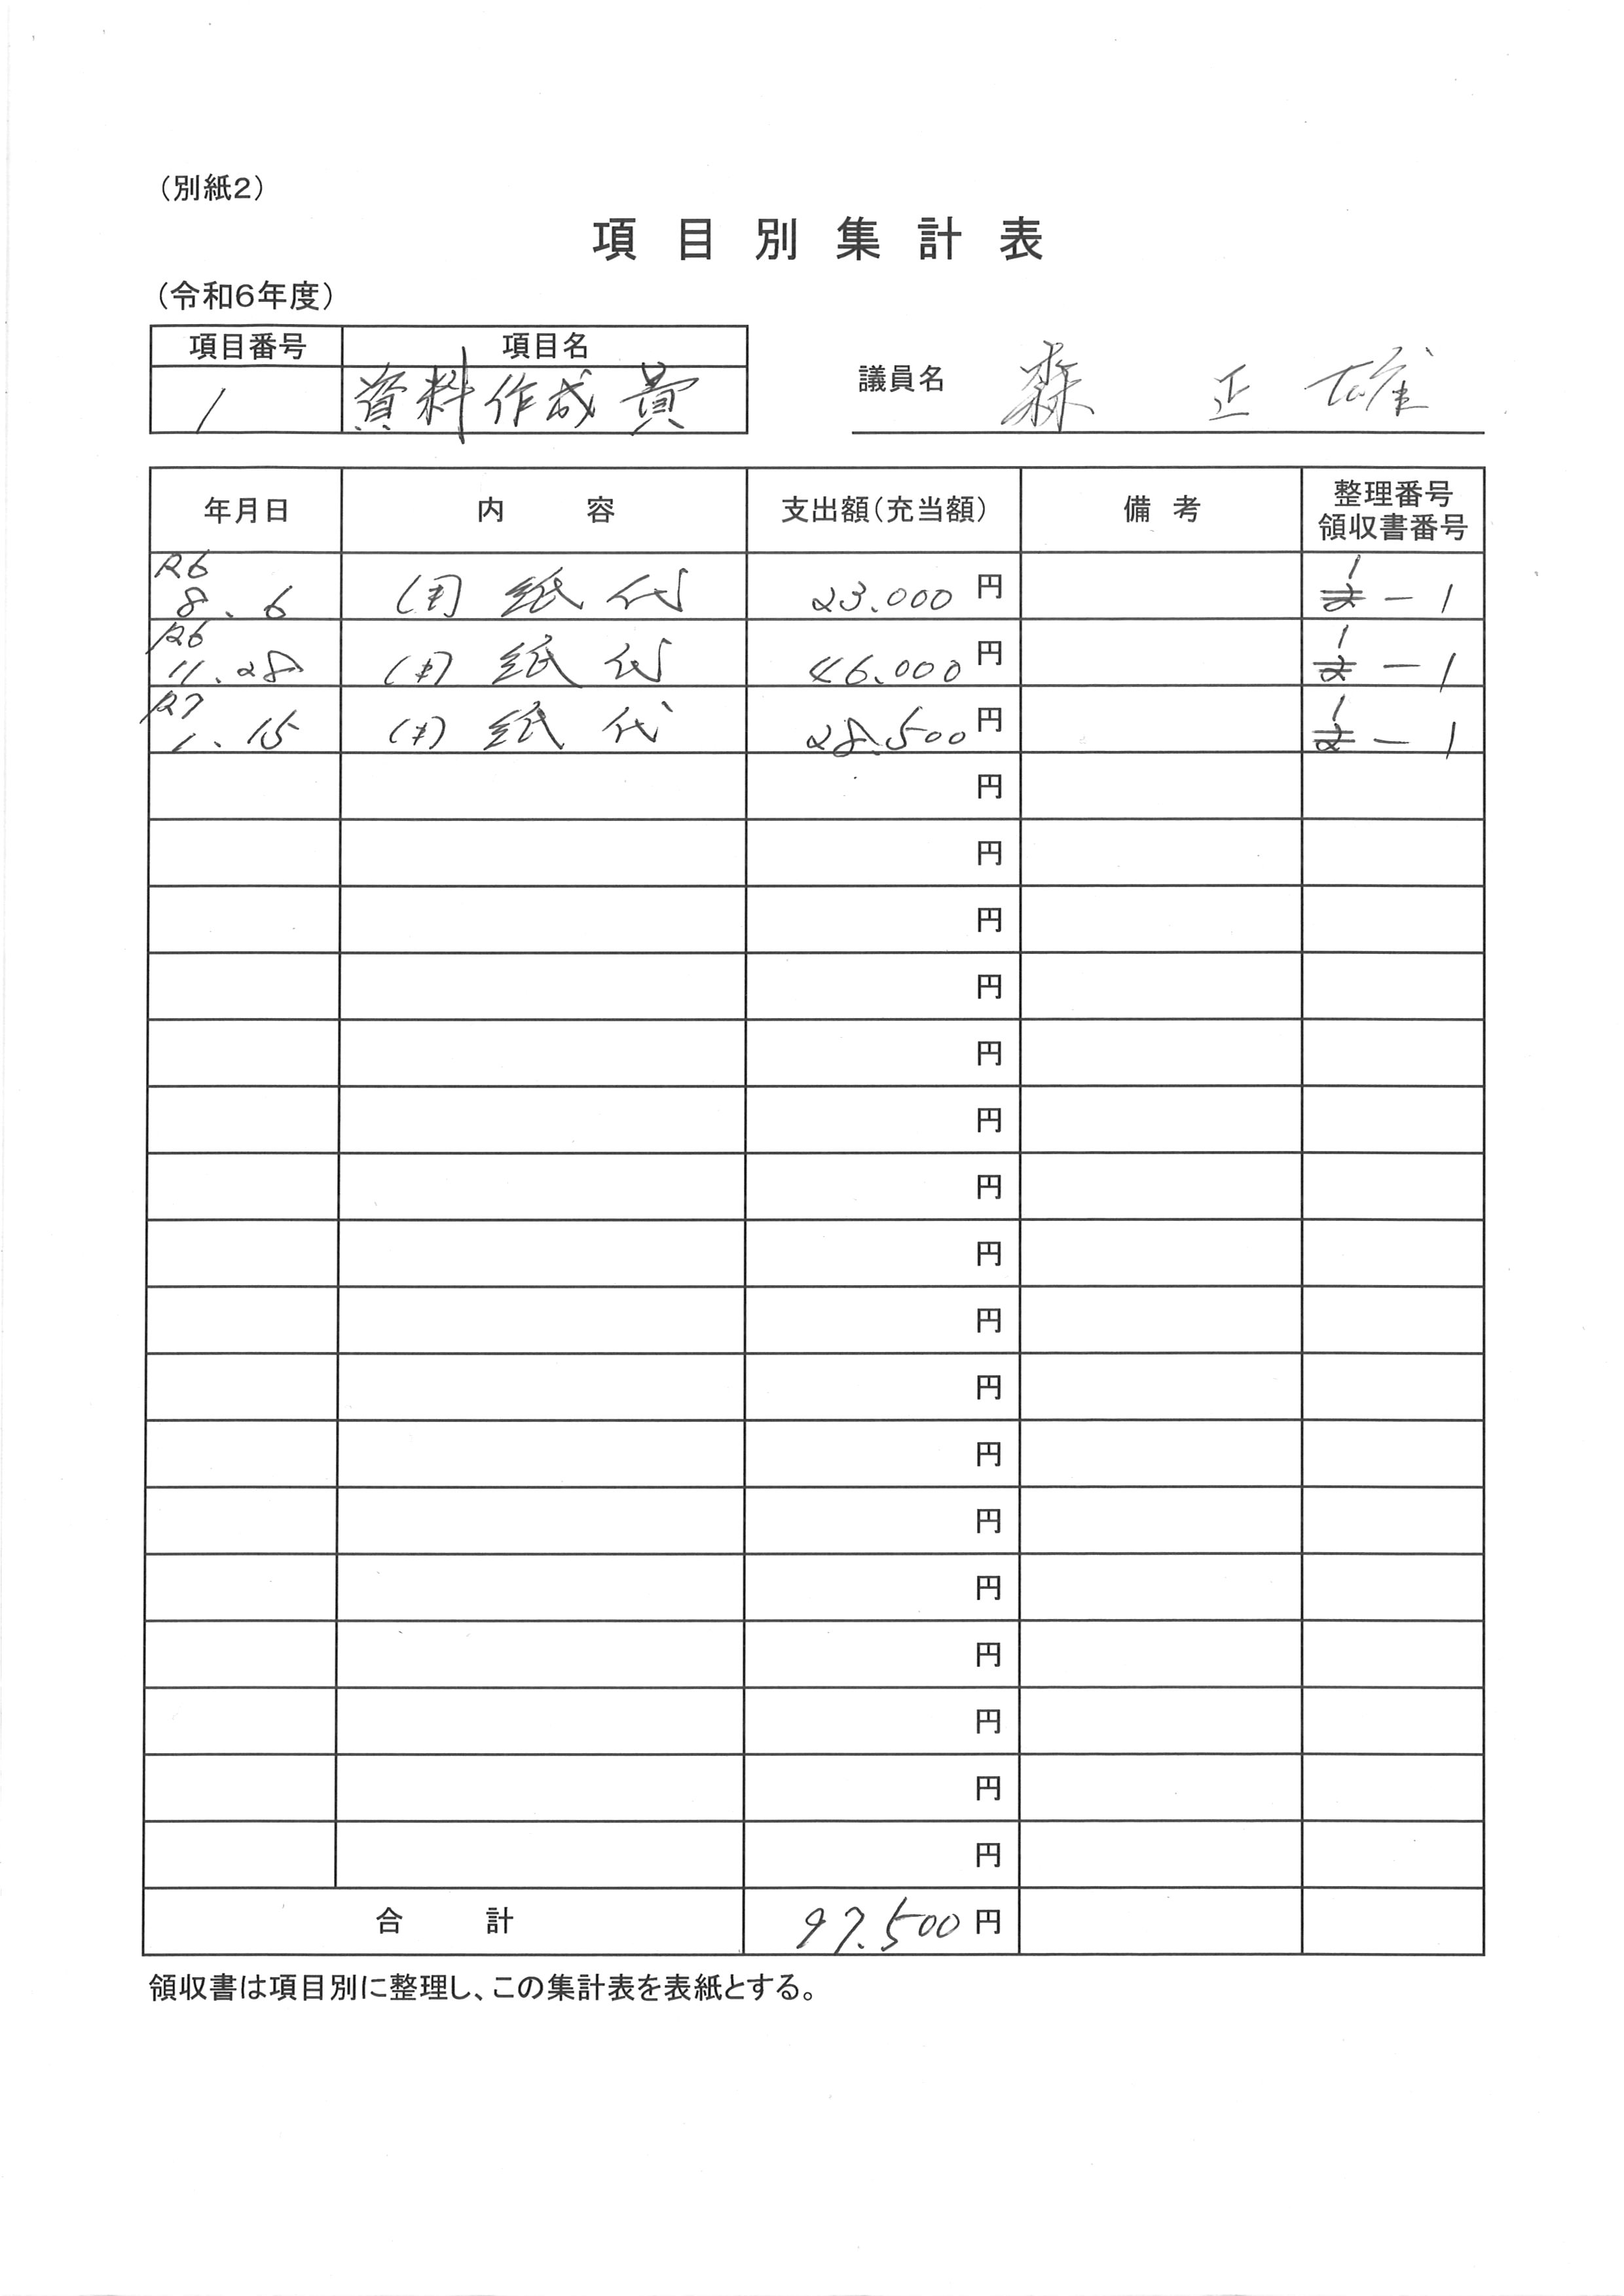 （別紙2）
項目別集計表
（令和6年度）
項目番号 項目名
1 資料作成費
議員名 森 正雄
年月日 内容 支出額（充当額） 備考 整理番号 領収書番号
R6 8.6 紙代 23.000円 1 2 - 1
R6 11.28 紙代 46.000円 1 2 - 1
R7 1.15 紙代 28.500円 1 2 - 1
円
円
円
円
円
円
円
円
円
円
円
円
円
円
円
円
円
合計 97.500円
領収書は項目別に整理し、この集計表を表紙とする。